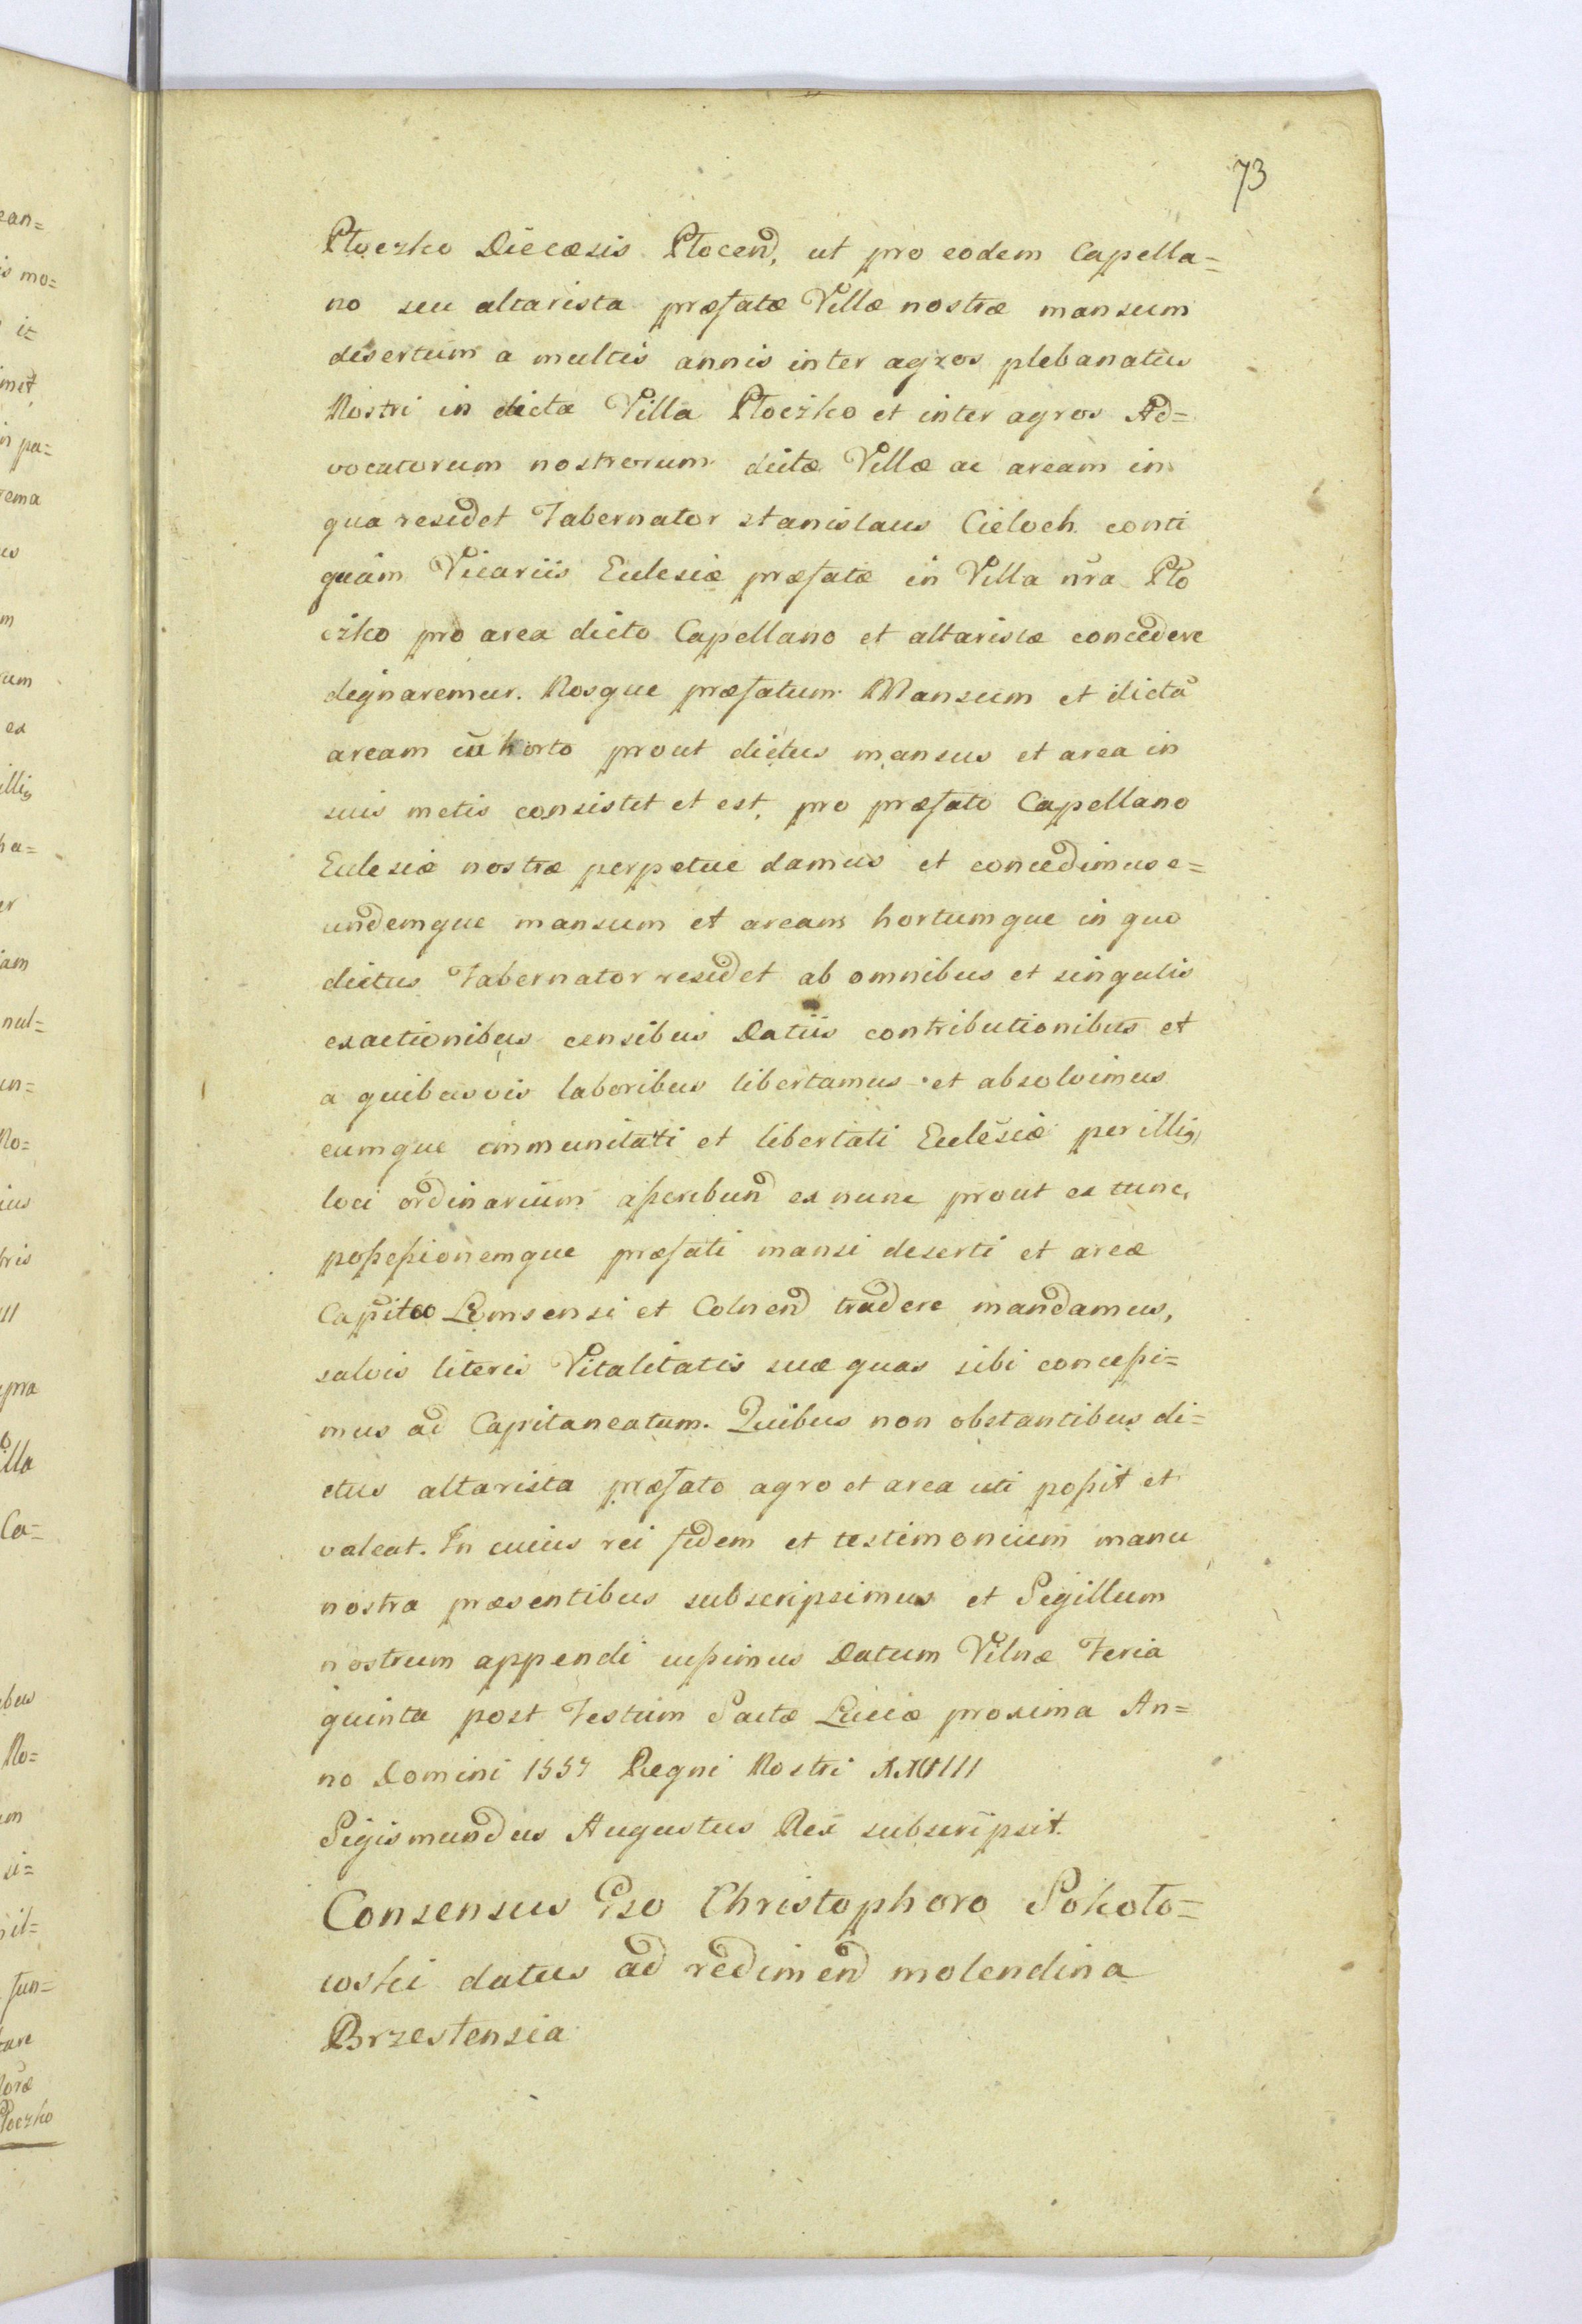 73
Ptoczko Diecæsis Ptocend, ut pro eodem Capella=
no seu altarista præfatæ Villæ nostræ mansum
desertum a multis annis inter agros plebanatus
Nostri in dicta Villa Ptoczko et inter agros Ad=
vocatorum nostrorum dictæ Villæ ac aream in
qua residet Tabernator Stanislaus Cieloch conti
guam Vicariis Eclesiæ præfatæ in Villa nra Pto
czko pro area dicto Capellano et altaristæ concedere
dignaremur. Nosque præfatum Mansum et dictā
aream cū horto prout dictus mansus et area in
suis metis consistet et est, pro præfato Capellano
Eclesiæ nostræ perpetue damus et concedimus e=
undemque mansum et aream hortumque in quo
dictus Tabernator residet ab omnibus et singulis
exactionibus censibus Datiis contributionibus et
a quibusvis laboribus libertamus et absolvimus
eumque immunitati et libertati Eclesiæ per illig
loci ordinarium asscribend ex nunc prout ex tunc,
possessionemque præfati mansi deserti et areæ
Capiteo Lomsensi et Colnend tradere mandamus,
salvis literis Vitalitatis suæ quas sibi concessi=
mus ad Capitaneatum. Quibus non obstantibus di=
ctus altarista præfato agro et area uti possit et
valeat. In cuius rei fidem et testimonium manu
nostra præsentibus subscripsimus et Sigillum
nostrum appendi iussimus Datum Vilnæ Feria
quinta post Festum Sactæ Luciæ proxima An=
no Domini 1557 Regni Nostri XXVIII
Sigismundus Augustus Rex subscripsit.
Consensus Gso Christophoro Sokoto=
wski datus ad redimend molendina
Brzestensia